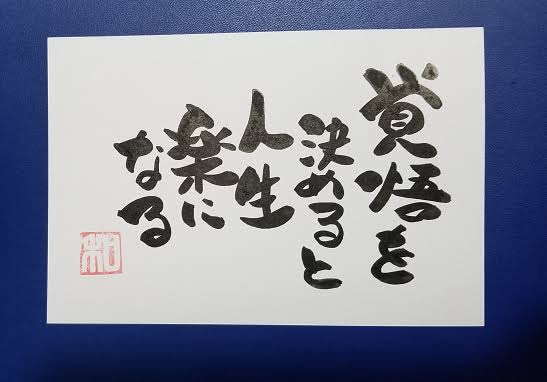 覚悟を
決めると
人生
楽に
なる
和